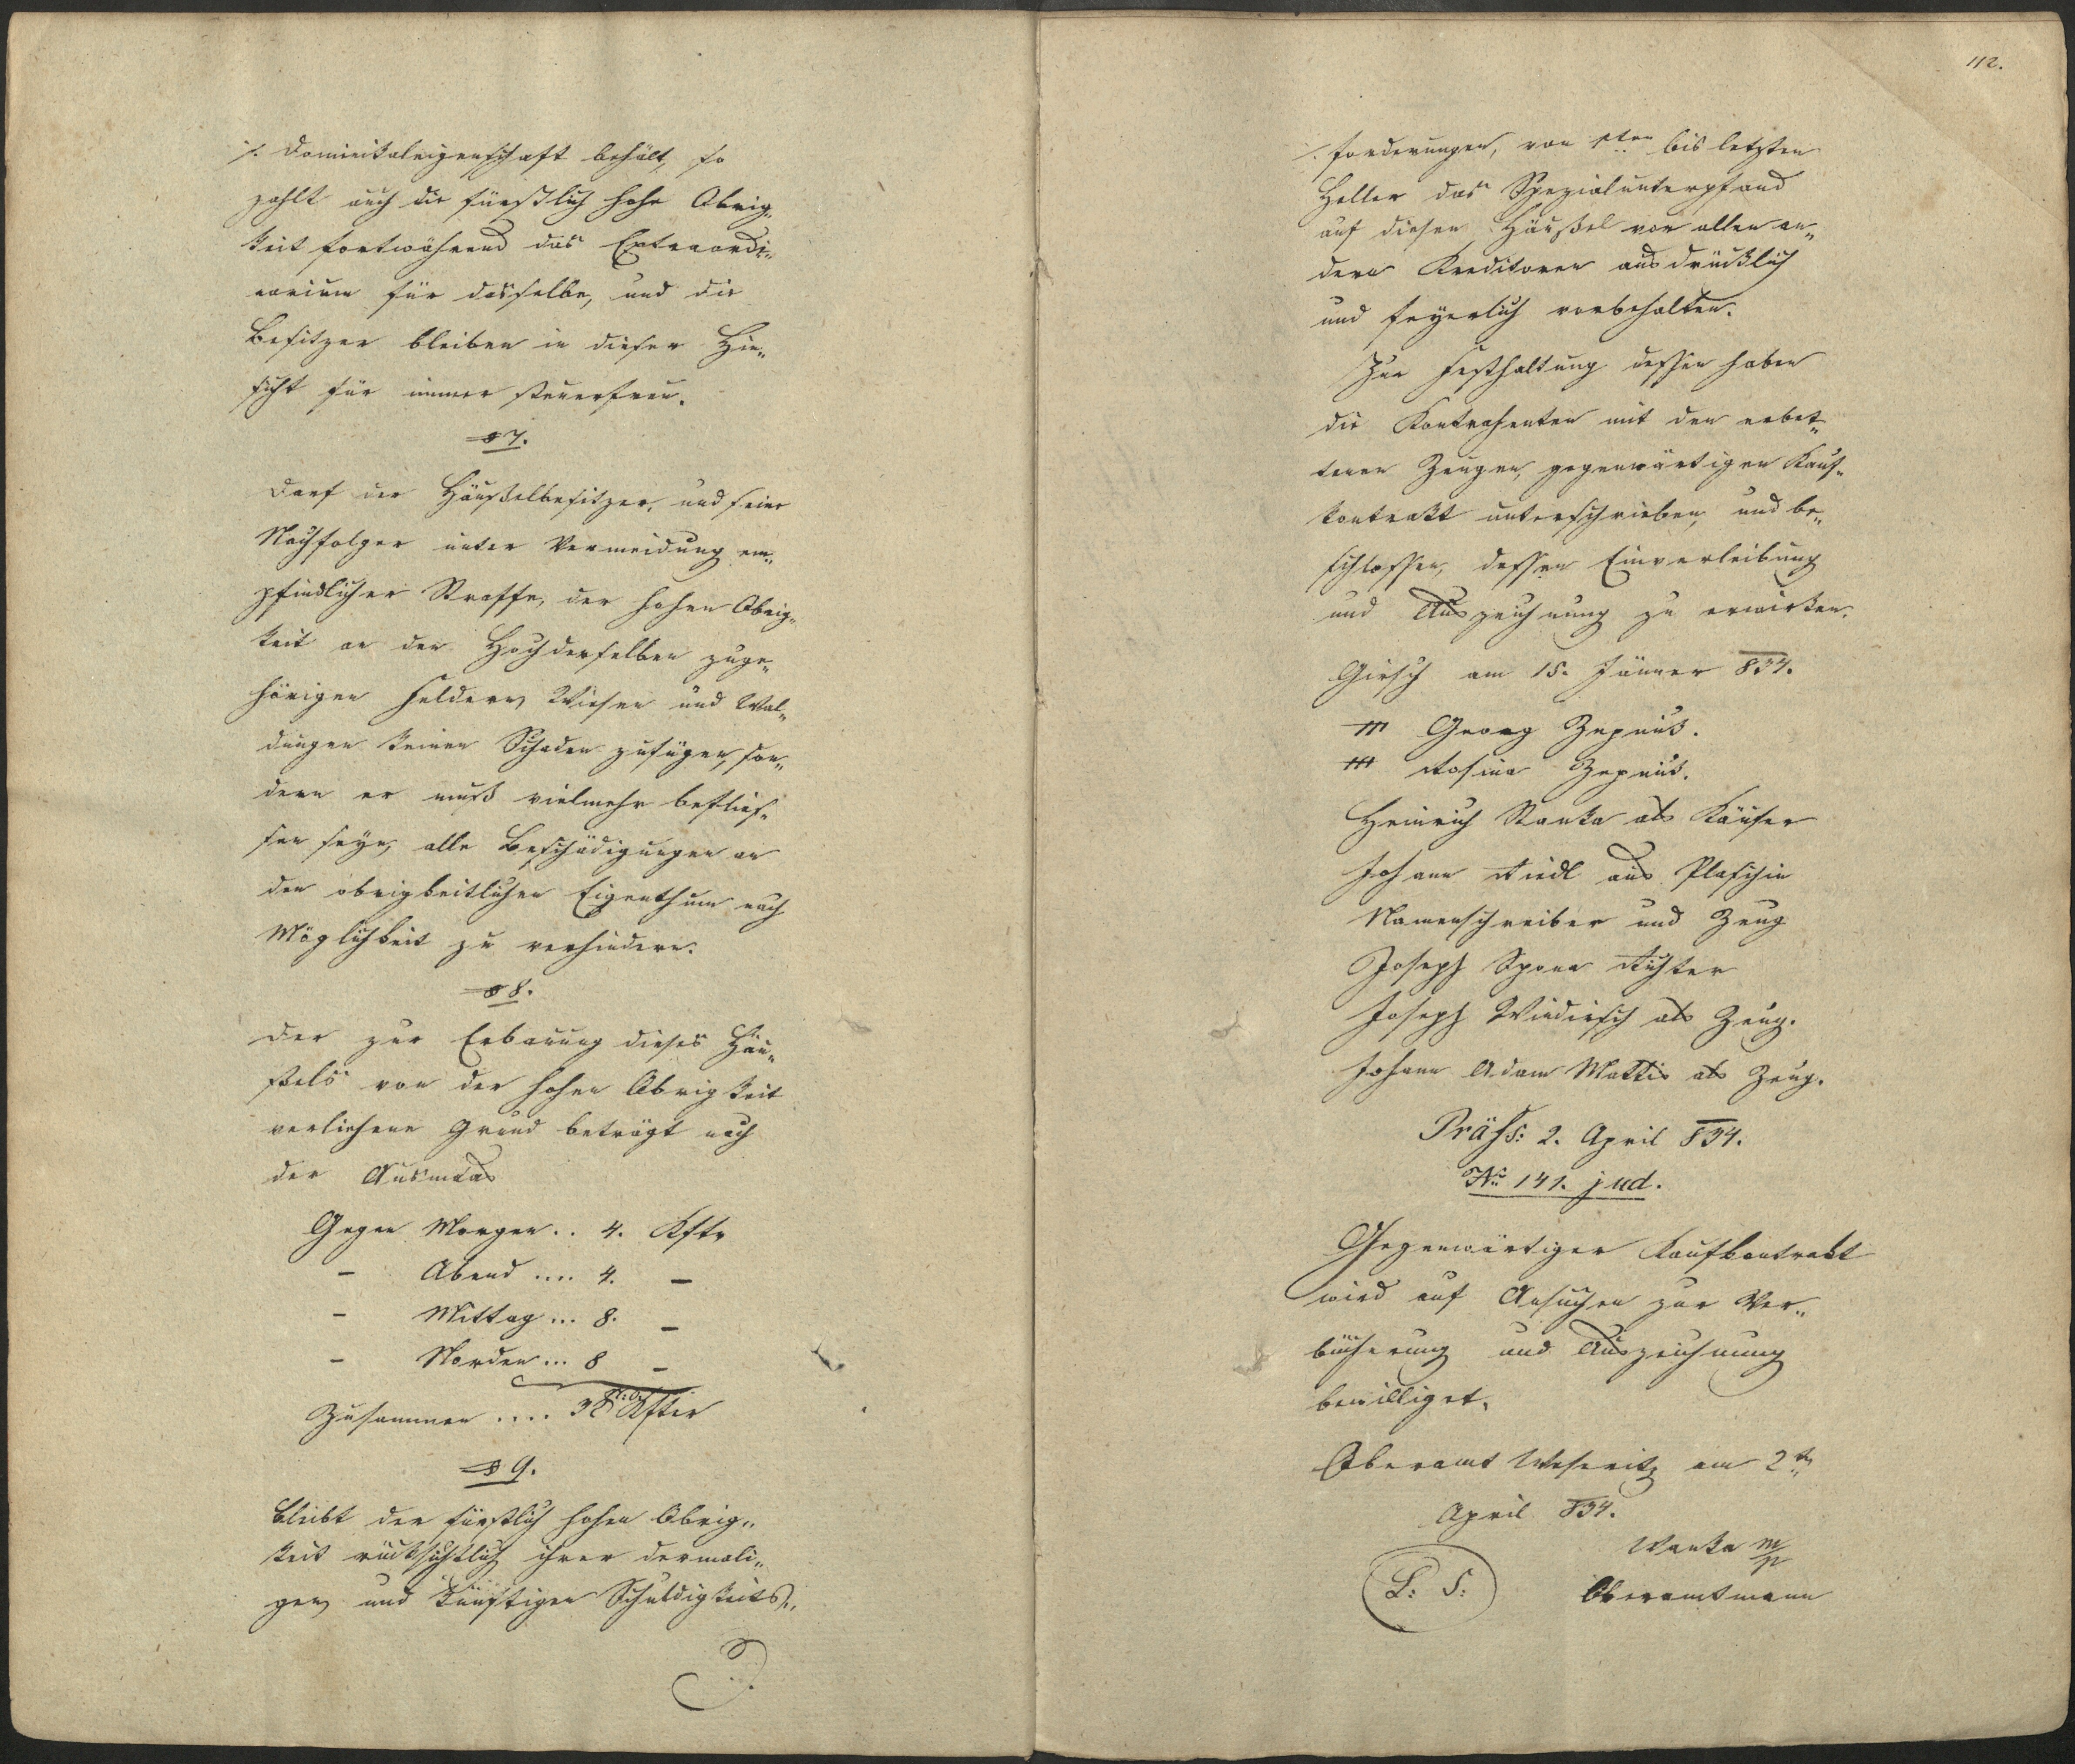 ./. Dominikaleigenschaft behält, so
zahlt auch die fürstlich hohe Obrig„
keit fortwährend das Extraordi„
narium für dasselbe, und die
Besitzer bleiben in dieser Hin„
sicht für immer steuerfreu.
§ 7.
Darf der Häußelbesitzer, und seine
Nachfolger unter Vermeidung em„
pfindlicher Straffe, der hohen Obrig„
keit an den Hochderselben zuge„
hörigen Feldern, Wiesen und Wal„
dungen keinen Schaden zufügen, son„
dern er muß vielmehr beflies„
sen seyn, alle Beschädigungen an
den obrigkeitlichen Eigenthum nach
Möglichkeit zu verhindern.
§ 8.
Der zur Erbauung dieses Häu„
ßels von der hohen Obrigkeit
verliehene Grund beträgt nach
der Ausmaas
Gegen Morgen .. 4. Kftr
— Abend .... 4. —
— Mittag ... 8. —
— Norden ... 8 —
Zusammen .... 32 Kfter
§ 9.
Bleibt der fürstlich hohen Obrig„
keit rücksichtlich ihrer dermali„
gen, und künftigen Schuldigkeits„
./.
112.
./. forderungen, von 1ten bis letzten
Heller das Spezialunterpfand
auf diesen Häußel vor allen an„
dern Kreditoren ausdrücklich
und feyerlich vorbehalten.
Zur Festhaltung dessen haben
die Kontrahenten mit den erbet„
tenen Zeugen, gegenwärtigen Kauf„
kontrakt unterschrieben, und be„
schlossen, dessen Einverleibung
und Auszeichnung zu erwirken.
Girsch am 15. Jänner 834.
+++ Georg Zepnik.
+++ Rosina Zepnik.
Heinrich Stanka als Käufer
Johann Riedl aus Plaschin
Namenschreiber und Zeug
Joseph Sponn Richter
Joseph Windirsch als Zeug.
Johann Adam Mattis als Zeug.
Präss: 2. April 834.
No 141. jud.
Gegenwärtiger Kaufkontrakt
wird auf Ansuchen zur Ver„
bücherung und Auszeichnung
bewilliget.
Oberamt Weseritz am 2t
April 834.
Wanka m/p
L: S: Oberamtmann